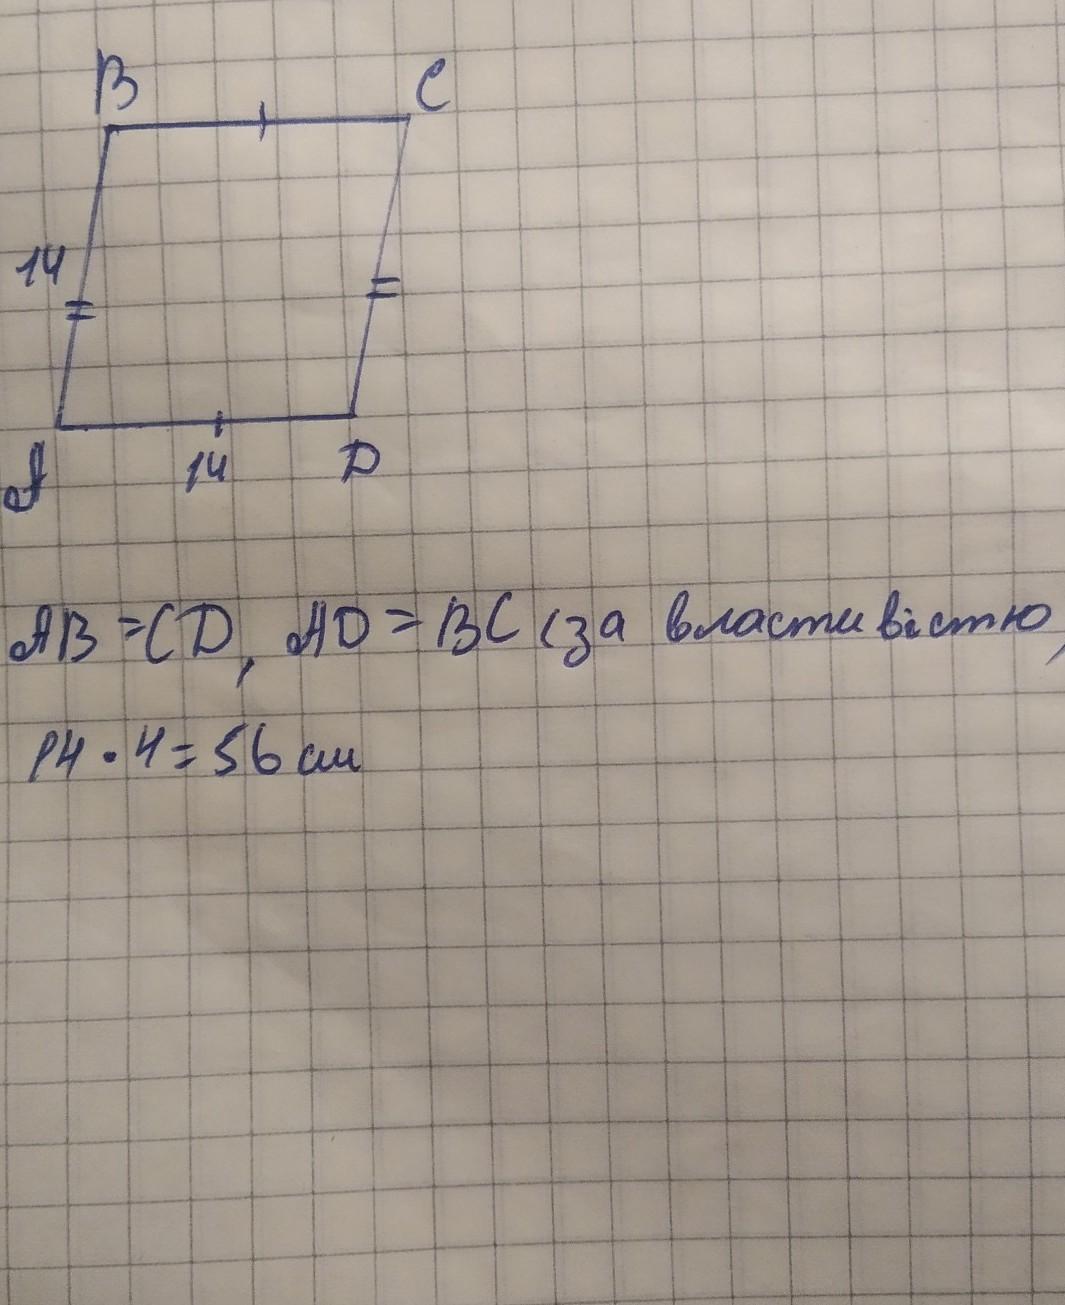 B C
14
A 14 D
AB = CD, AD = BC (за властивістю)
14 · 4 = 56 см